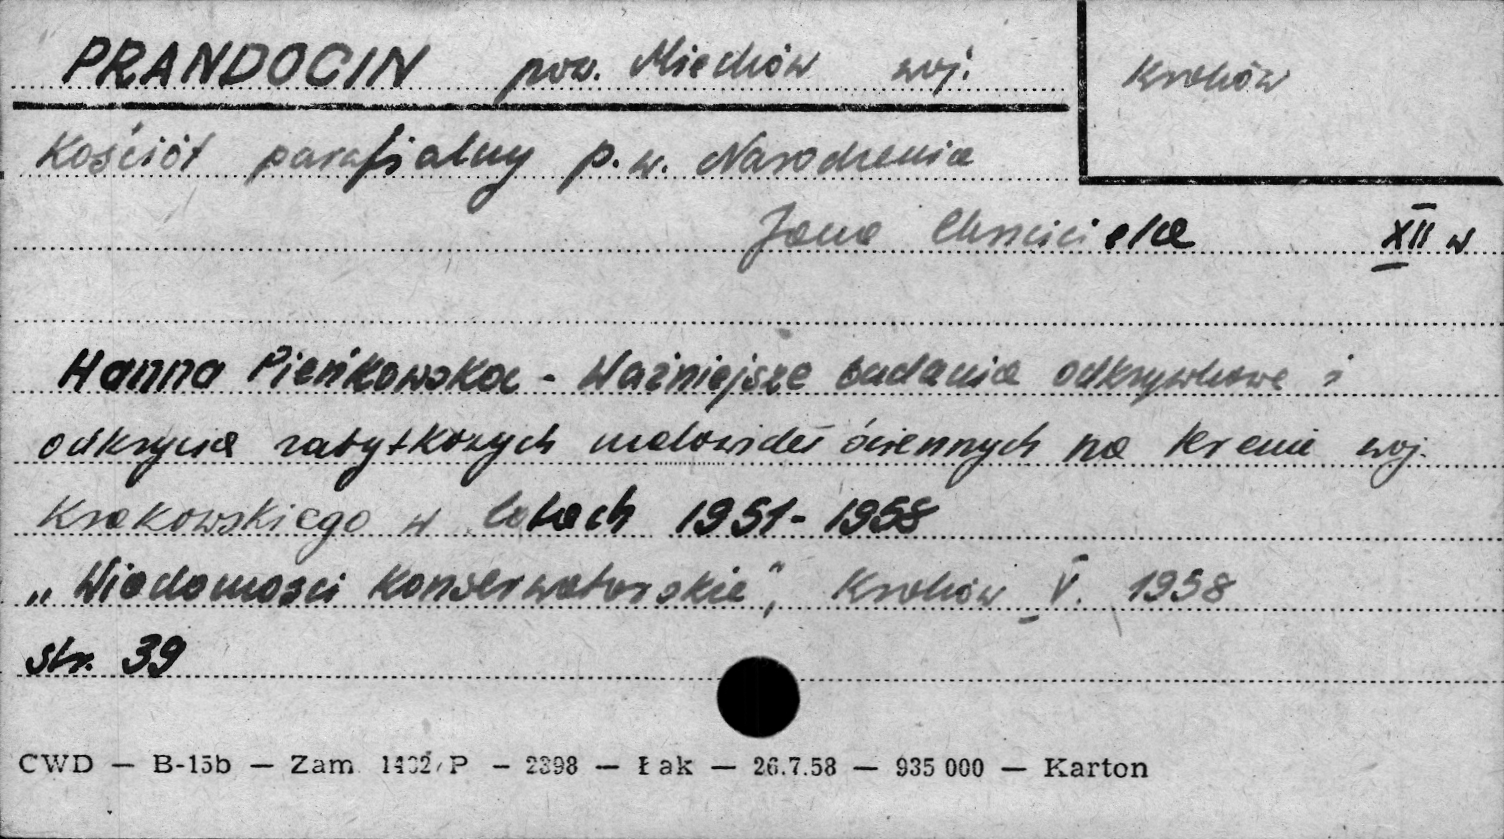 PRANDOCIN pow. Miechów woj. Kraków
Kościół parafialny p.w. Narodzenia
Jana Chrzciciela XII w
Hanna Pieńkowska - Ważniejsze badania odkrywkowe i
odkrycia zabytkowych malowideł ściennych na terenie woj.
Krakowskiego w latach 1951-1958
„Wiadomości Konserwatorskie", Kraków V. 1958
str. 39
CWD — B-15b — Zam 1402/P — 2398 — Łak — 26.7.58 — 935 000 — Karton